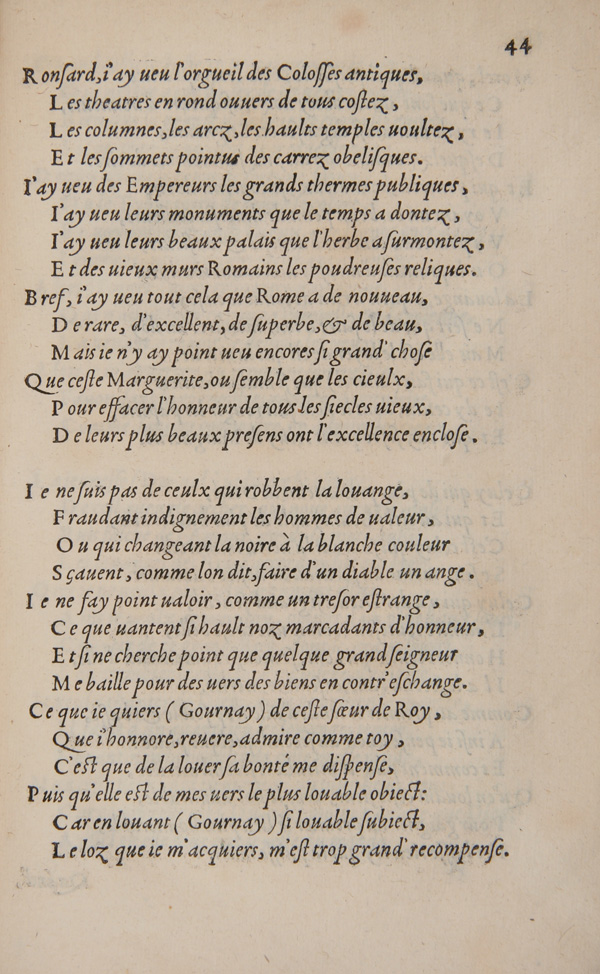 44
Ronſard, i'ay ueu l'orgueil des Coloſſes antiques,
Les theatres en rond ouuers de tous coſtez,
Les columnes, les arcz, les haults temples uoultez,
Et les ſommets pointus des carrez obeliſques.
I'ay ueu des Empereurs les grands thermes publiques,
I'ay ueu leurs monuments que le temps a dontez,
I'ay ueu leurs beaux palais que l'herbe a ſurmontez,
Et des uieux murs Romains les poudreuſes reliques.
Bref, i'ay ueu tout cela que Rome a de nouueau,
De rare, d'excellent, de ſuperbe, & de beau,
Mais ie n'y ay point ueu encores ſi grand' choſe
Que ceſte Marguerite, ou ſemble que les cieulx,
Pour effacer l'honneur de tous les ſiecles uieux,
De leurs plus beaux preſens ont l'excellence encloſe.
Ie ne ſuis pas de ceulx qui robbent la louange,
Fraudant indignement les hommes de ualeur,
Ou qui changeant la noire à la blanche couleur
Sçauent, comme lon dit, faire d'un diable un ange.
Ie ne fay point ualoir, comme un treſor eſtrange,
Ce que uantent ſi hault noz marcadants d'honneur,
Et ſi ne cherche point que quelque grand ſeigneur
Me baille pour des uers des biens en contr'eſchange.
Ce que ie quiers (Gournay) de ceſte ſœur de Roy,
Que i'honnore, reuere, admire comme toy,
C'eſt que de la louer ſa bonté me diſpenſe,
Puis qu'elle eſt de mes uers le plus louable obiect:
Car en louant (Gournay) ſi louable ſubiect,
Le loz que ie m'acquiers, m'eſt trop grand' recompenſe.